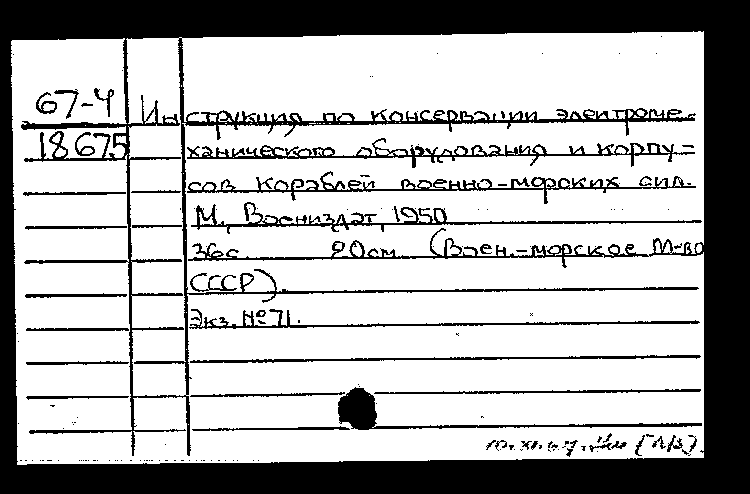 67-4 Инструкция по консервации электроме-
18675 ханического оборудования и корпу=
сов кораблей военно-морских сил.
М., Воениздат, 1950
36с. 20см (Воен.-морское М-во
СССР).
Экз. №71.
10.XI.67. (МВ).